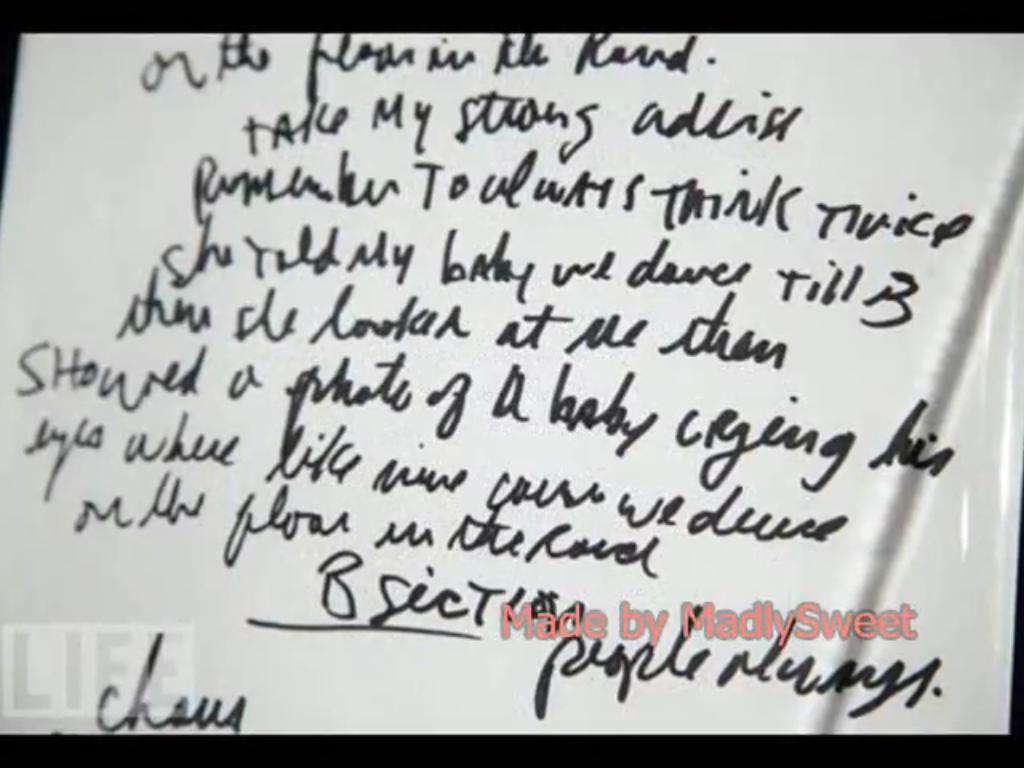 on the floor in the Round.
TAKe My strong advise
Remember To always THINK Twice
She Told My baby we dance Till 3
then she looked at me then
SHowed a photo of A baby crying his
eyes where like mine cause we dance
on the floor in the Round
B SecTion
Made by MadlySweet
people always.
LIFE
chous